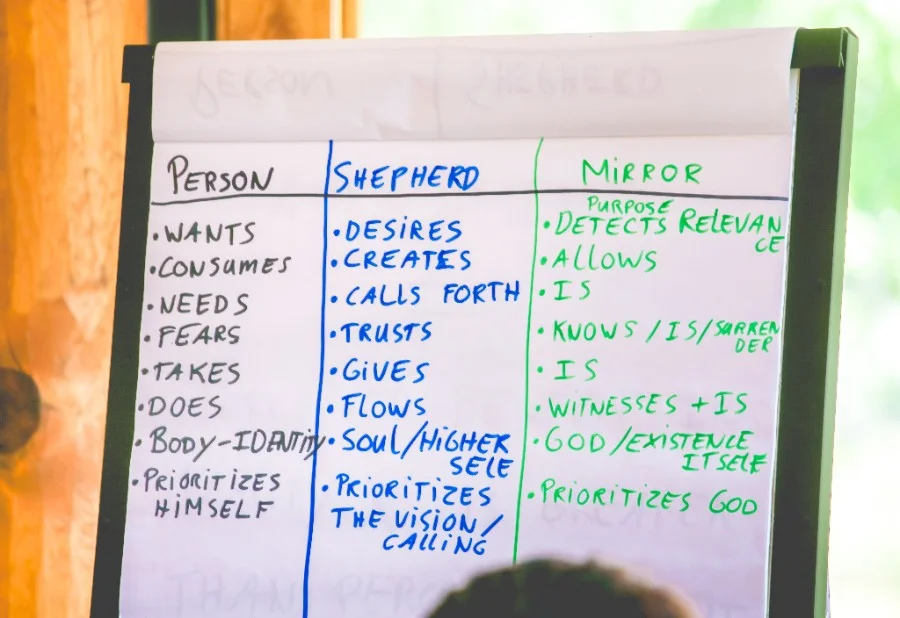 PERSON
• WANTS
• CONSUMES
• NEEDS
• FEARS
• TAKES
• DOES
• BODY-IDENTITY
• PRIORITIZES
HIMSELF
SHEPHERD
• DESIRES
• CREATES
• CALLS FORTH
• TRUSTS
• GIVES
• FLOWS
• SOUL/HIGHER
SELF
• PRIORITIZES
THE VISION/
CALLING
MIRROR
PURPOSE
• DETECTS RELEVAN
CE
• ALLOWS
• IS
• KNOWS /IS/SURREN
DER
• IS
• WITNESSES + IS
• GOD/EXISTENCE
ITSELF
• PRIORITIZES GOD